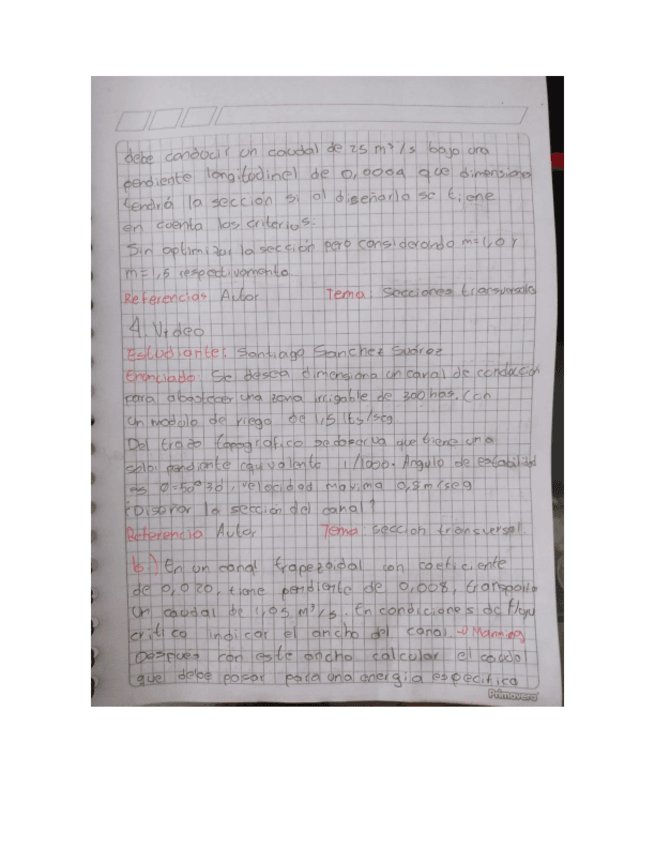 debe conducir un caudal de 25 m³/s bajo una
pendiente longitudinal de 0,0004 que dimensiones
tendrá la seccion si al diseñarla se tiene
en cuenta los criterios.
Sin optimizar la sección pero considerando m=1,0 y
m=1,5 respectivamente
Referencias Autor Tema: Secciones transversales
4. Video
Estudiante: Santiago Sanchez Suárez
Enunciado: Se desea dimensiona un canal de conducción
para abastecer una zona irrigable de 300 has. Con
Un modulo de riego de 1,5 lts/seg
Del trazo topográfico se observa que tiene una
sola pendiente equivalente 1/1000. Angulo de estabilidad
es θ=50°30', velocidad maxima 0,8 m/seg
¿Diseñar la sección del canal?
Referencia Autor Tema: seccion transversal
b.) En un canal trapezoidal con coeficiente
de 0,020, tiene pendiente de 0,008, transporta
Un caudal de 1,05 m³/s. En condiciones de flujo
critico indicar el ancho del canal. → Manning
Despues con este ancho calcular el caudo
que debe pasar para una energia especifica
Primavera